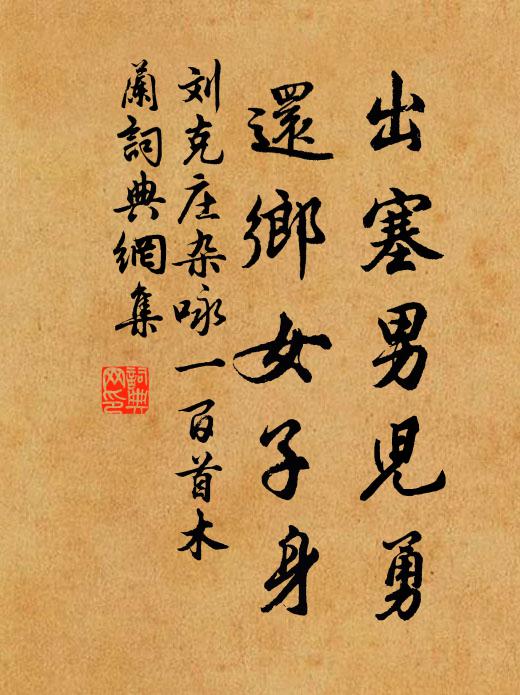 出塞男児勇
還鄉女子身
刘克庄杂咏一百首木
蘭詞典網集
詞典
网印